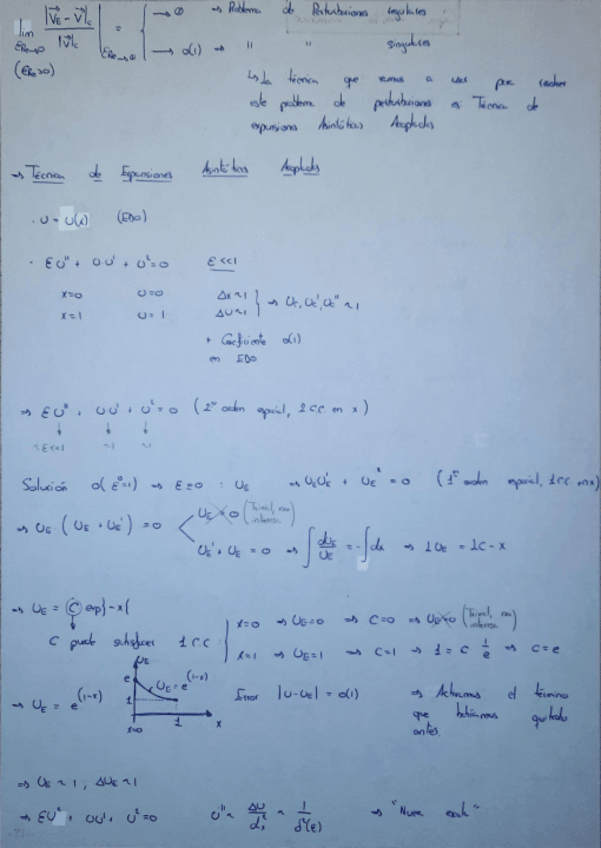 lim |V⃗E - V⃗|c / |V⃗|c | = { → 0 → Problema de Perturbaciones regulares
εRe→0 → o(1) → " " singulares
(εRe>0)
↳ La técnica que vamos a usar para resolver
este problema de perturbaciones es Técnica de
expansiones Asintóticas Acopladas
→ Técnica de Expansiones Asintóticas Acopladas
· U = U(x) (EDO)
· εU'' + UU' + U² = 0 ε<<1
x=0 U=0 Δx~1
x=1 U=1 ΔU~1 } ⇒ U, U', U'' ~1
+ Coeficiente o(1)
en EDO
⇒ εU'' + UU' + U² = 0 (2º orden espacial, 2 C.C. en x)
~ε<<1 ~1 ~1
Solución o(ε⁰=1) → ε=0 : UE ⇒ UEUE' + UE² = 0 (1er orden espacial, 1 CC en x)
⇒ UE (UE + UE') = 0 < UE = 0 (Trivial, no interesa)
UE' + UE = 0 ⇒ ∫ dUE/UE = -∫dx ⇒ lUE = lC - x
⇒ UE = C exp{-x{
C puede satisfacer 1 C.C { x=0 ⇒ UE=0 ⇒ C=0 ⇒ UE=0 (Trivial, no interesa)
x=1 ⇒ UE=1 ⇒ C=1 ⇒ 1 = C 1/e ⇒ C=e
UE
e
UE = e^(1-x)
1
⇒ UE = e^(1-x) Error |U-UE| = o(1) ⇒ Achacamos el término
que habíamos quitado
antes.
x=0 1 x
⇒ UE ~ 1, ΔUE ~ 1
⇒ εU'' + UU' + U² = 0 U'' ~ ΔU/d² ~ 1/d²(ε) ⇒ "Nueva escala"